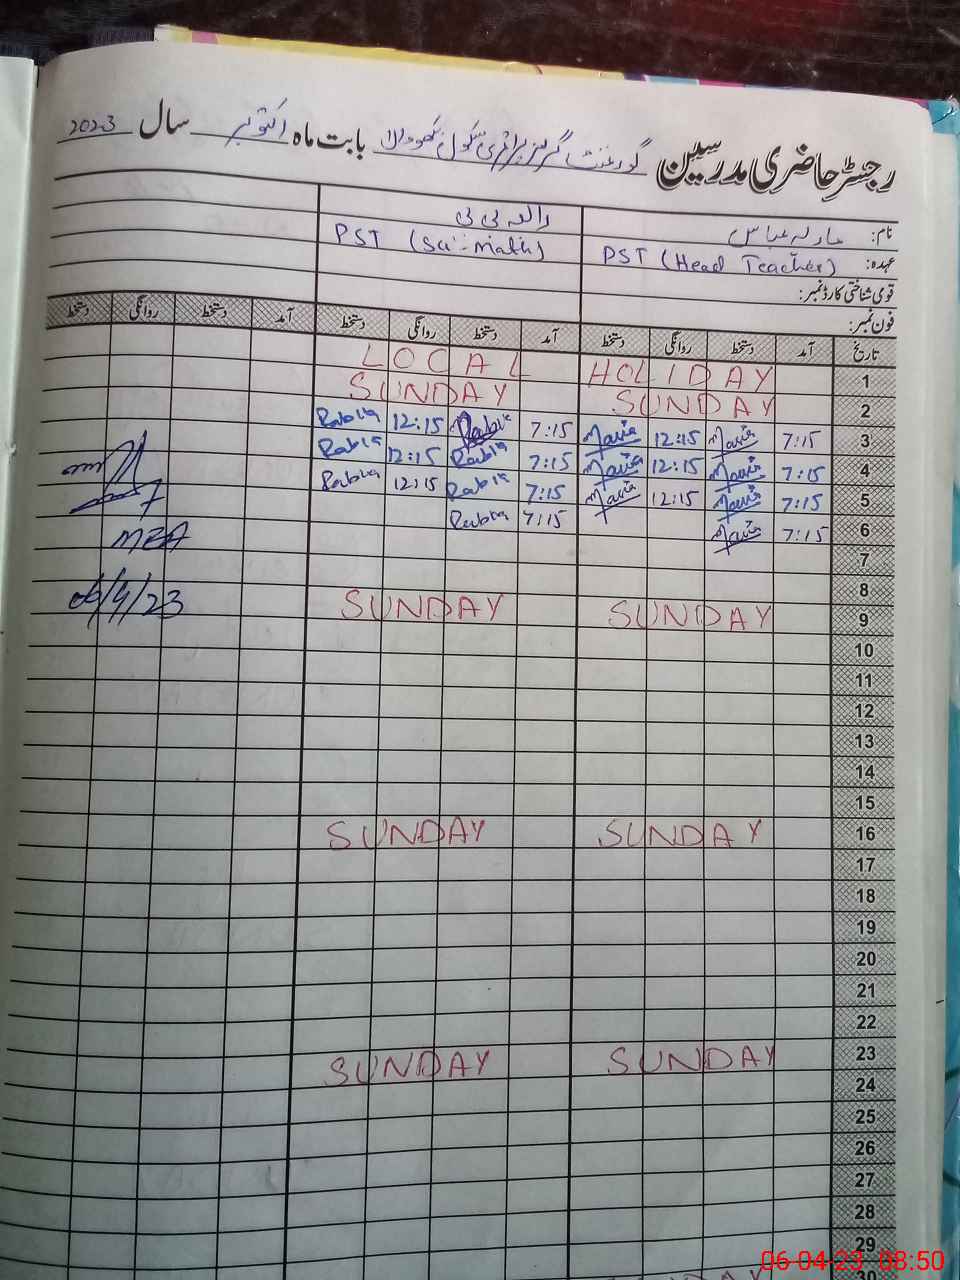 رجسٹر حاضری مدرسین گورنمنٹ گرلز پرائمری سکول کھوہ والا بابت ماہ اکتوبر سال 2023
نام: ماریہ عباس رابعہ بی بی
عہدہ: PST (Head Teacher) PST (Sci-Math)
قومی شناختی کارڈ نمبر:
فون نمبر:
تاریخ آمد دستخط روانگی دستخط آمد دستخط روانگی دستخط آمد دستخط روانگی دستخط
1 LOCAL HOLIDAY
2 SUNDAY SUNDAY
3 7:15 Maria 12:15 Maria 7:15 Rabia 12:15 Rabia
4 7:15 Maria 12:15 Maria 7:15 Rabia 12:15 Rabia
5 7:15 Maria 12:15 Maria 7:15 Rabia 12:15 Rabia
6 7:15 Maria 7:15 Rabia
7
MEA
8
06/4/23
9 SUNDAY SUNDAY
10
11
12
13
14
15
16 SUNDAY SUNDAY
17
18
19
20
21
22
23 SUNDAY SUNDAY
24
25
26
27
28
29
30
06-04-23 08:50